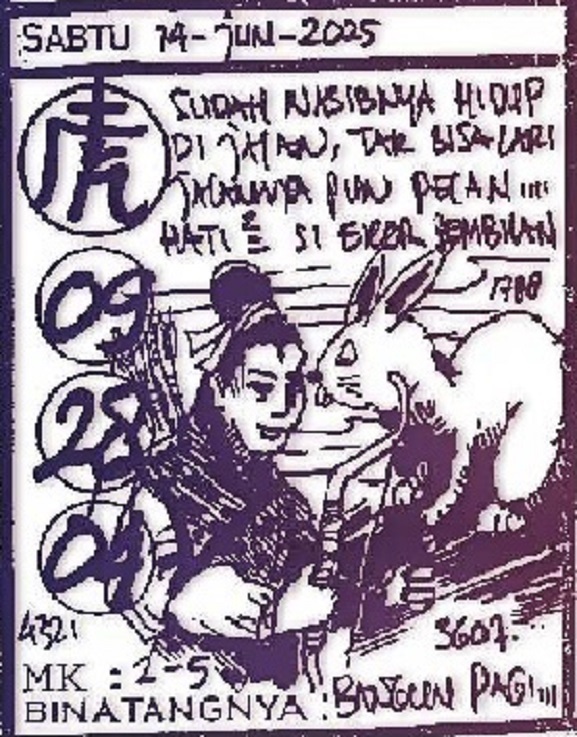 SABTU 14-JUN-2025
虎 SUDAH NASIBNYA HIDUP
DI JALAN, TAK BISA LARI
JALANNYA PUN PELAN....
HATI² SI EKOR SEMBILAN
1788
09
28
04
4321
3607...
MK : 2-5
BINATANGNYA : BANGUN PAGI...